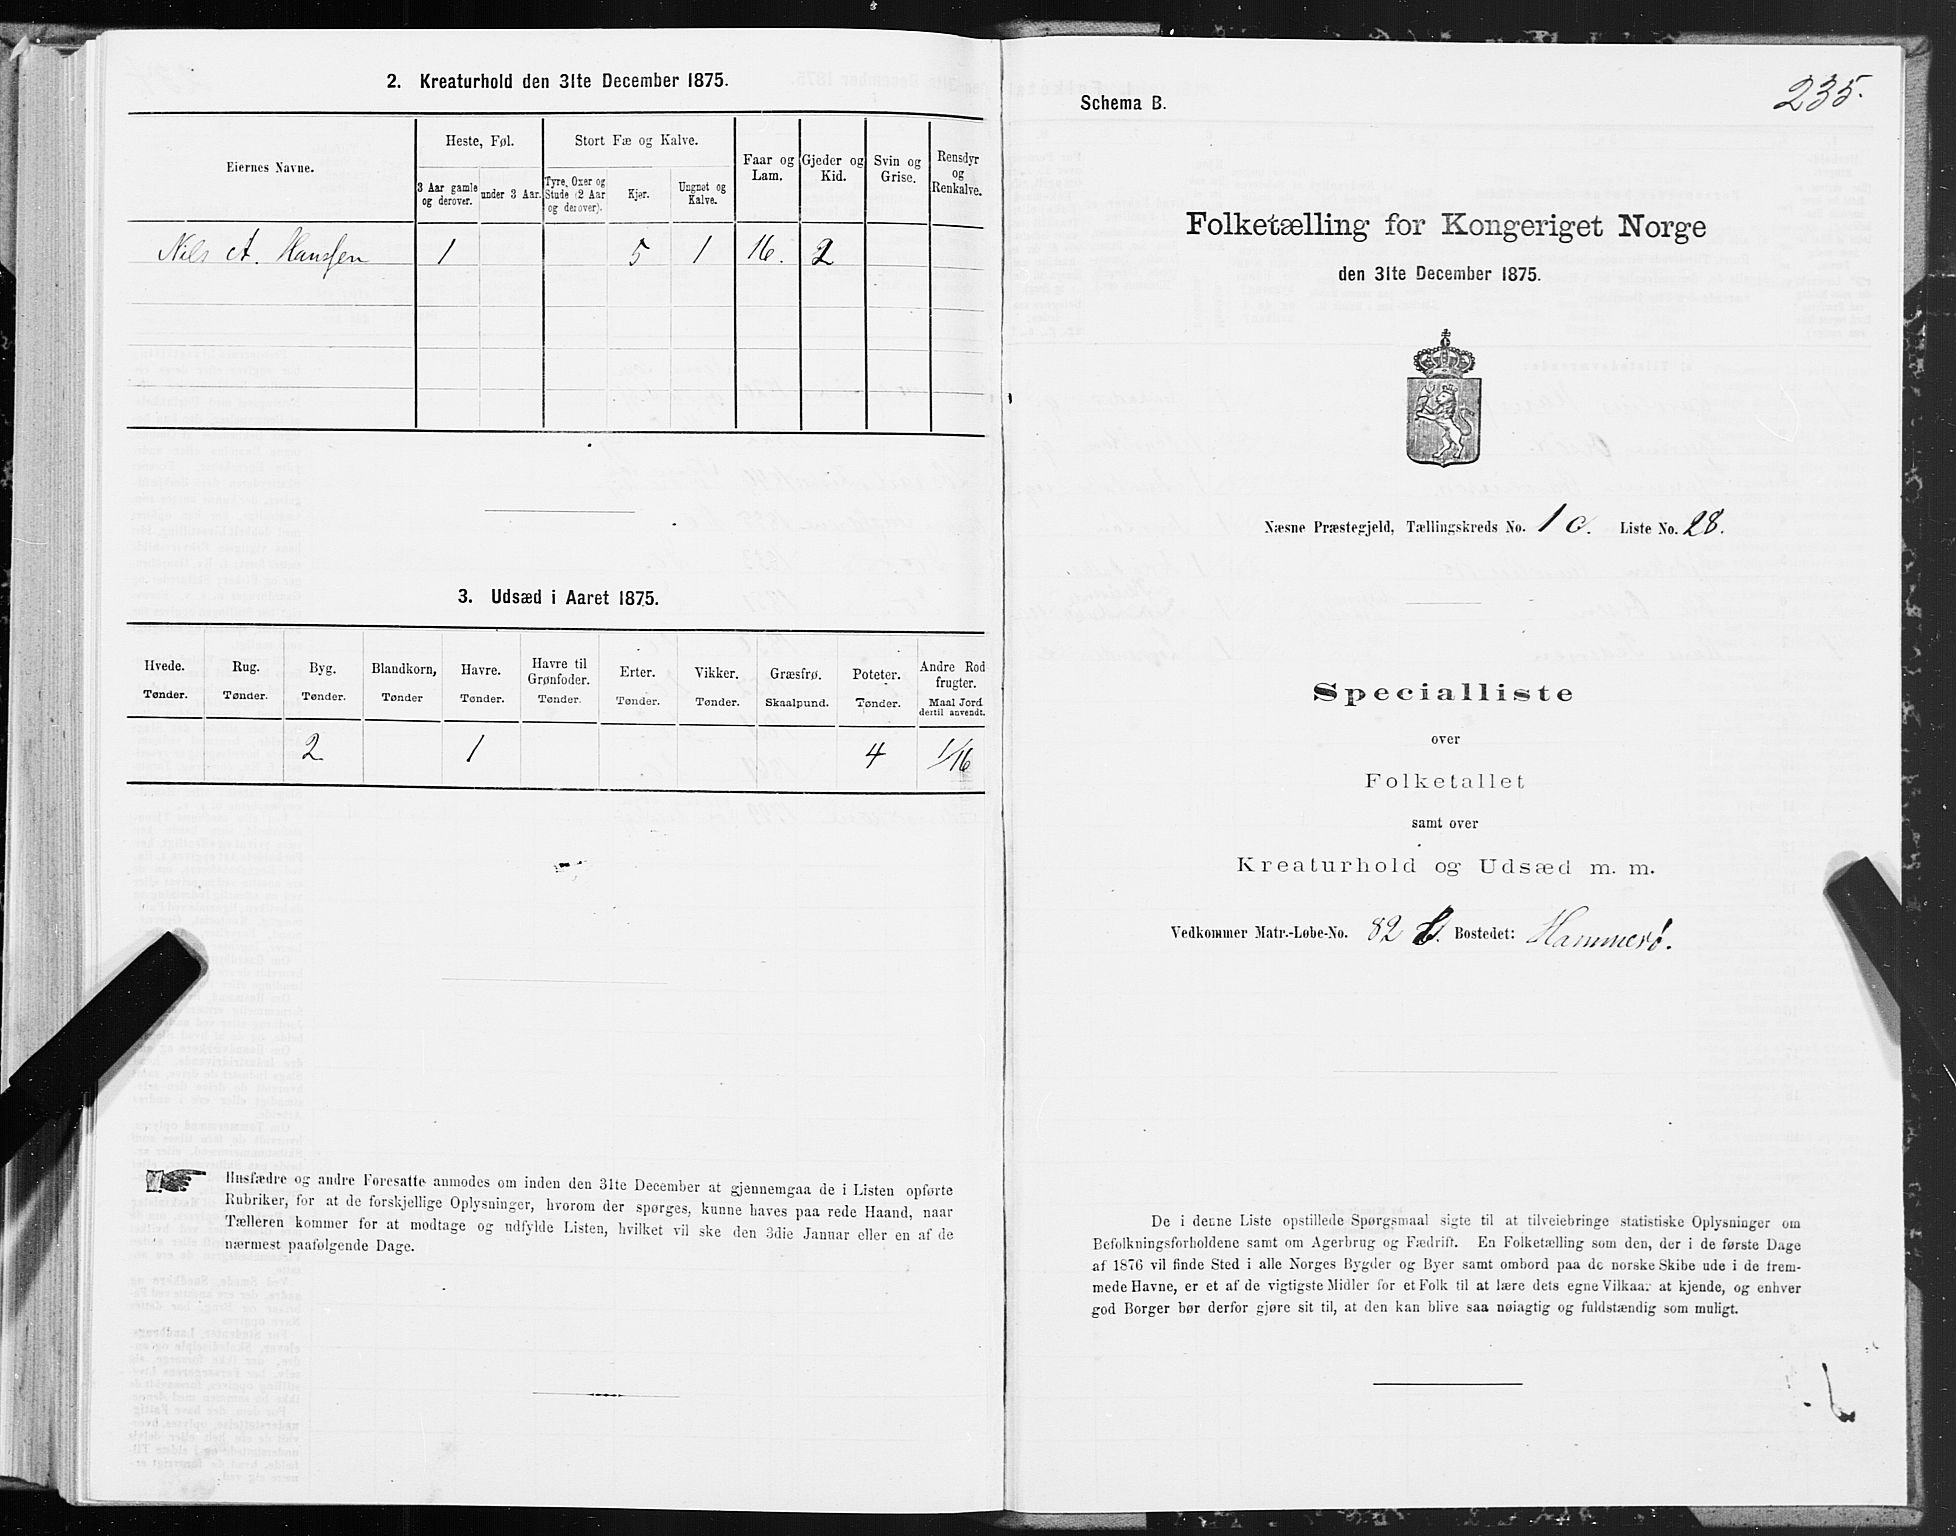 2. Kreaturhold den 31te December 1875.
Eiernes Navne.
Heste, Føl.
Stort Fæ og Kalve.
Faar og Lam.
Gjeder og Kid.
Svin og Grise.
Rensdyr og Renkalve.
3 Aar gamle og derover.
under 3 Aar.
Tyre, Oxer og Stude (2 Aar og derover).
Kjør.
Ungnøt og Kalve.
Nils A. Hansen 1 5 1 16. 2
3. Udsæd i Aaret 1875.
Hvede. Rug. Byg. Blandkorn, Havre. Havre til Grønfoder. Erter. Vikker. Græsfrø. Poteter. Andre Rodfrugter.
Tønder. Tønder. Tønder. Tønder Tønder. Tønder. Tønder. Tønder. Skaalpund. Tønder. Maal Jord dertil anvendt.
2 1 4 1/16
Husfædre og andre Foresatte anmodes om inden den 31te December at gjennemgaa de i Listen opførte
Rubriker, for at de forskjellige Oplysninger, hvorom der spørges, kunne haves paa rede Haand, naar
Tælleren kommer for at modtage og udfylde Listen, hvilket vil ske den 3die Januar eller en af de
nærmest paafølgende Dage.
235.
Schema B.
Folketælling for Kongeriget Norge
den 31te December 1875.
Næsne Præstegjeld, Tællingskreds No. 1 c. Liste No. 28.
Specialliste
over
Folketallet
samt over
Kreaturhold og Udsæd m. m.
Vedkommer Matr.-Løbe-No. 82 b. Bostedet: Hammerø.
De i denne Liste opstillede Spørgsmaal sigte til at tilveiebringe statistiske Oplysninger om
Befolkningsforholdene samt om Agerbrug og Fædrift. En Folketælling som den, der i de første Dage
af 1876 vil finde Sted i alle Norges Bygder og Byer samt ombord paa de norske Skibe ude i de frem-
mede Havne, er et af de vigtigste Midler for et Folk til at lære dets egne Vilkaar at kjende, og enhver
god Borger bør derfor gjøre sit til, at den kan blive saa nøiagtig og fuldstændig som muligt.